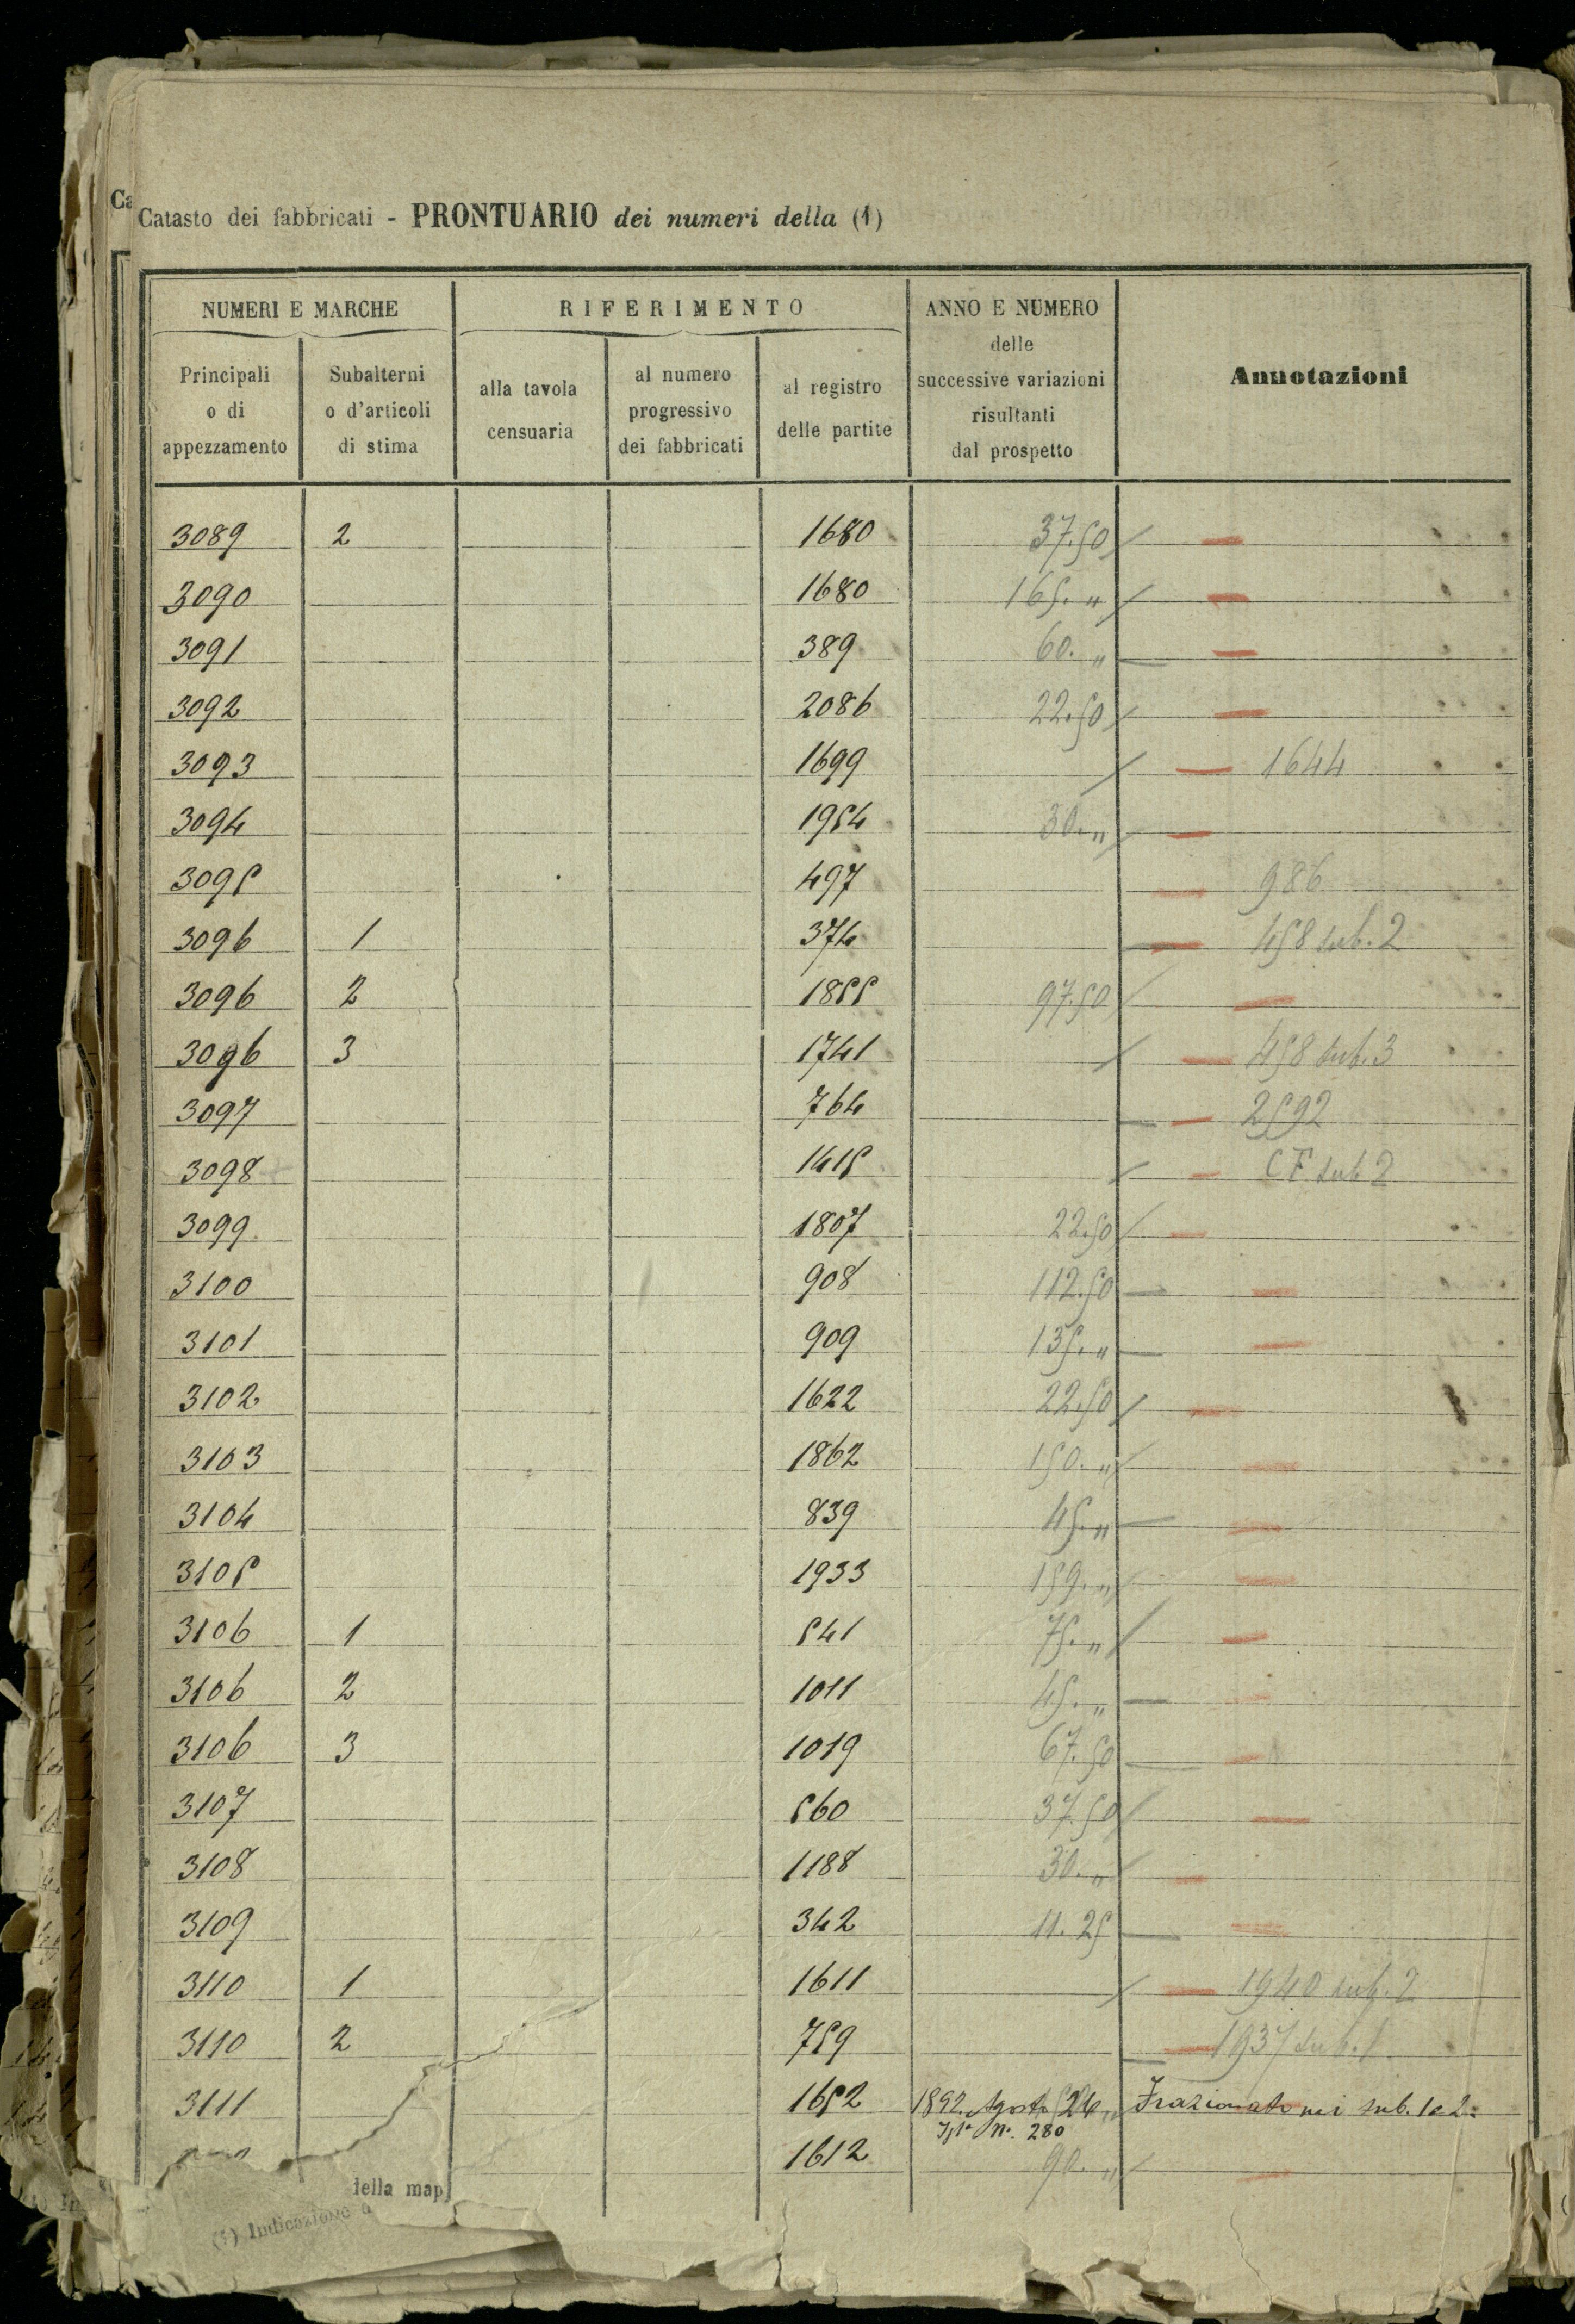 Catasto dei fabbricati - PRONTUARIO dei numeri della (1)
NUMERI E MARCHE
RIFERIMENTO
ANNO E NUMERO
delle
successive variazioni
risultanti
dal prospetto
Annotazioni
Principali
o di
appezzamento
Subalterni
o d'articoli
di stima
alla tavola
censuaria
al numero
progressivo
dei fabbricati
al registro
delle partite
3089 2 1680 37.50
3090 1680 165. "
3091 389 60. "
3092 2086 22.50
3093 1699 1644
3094 1954 30. "
3095 497 986
3096 1 374 458 sub. 2
3096 2 1855 97.50
3096 3 1741 458 sub. 3
3097 764 2592
3098 1415 CF sub 2
3099 1807 22.50
3100 908 112.50
3101 909 135. "
3102 1622 22.50
3103 1862 150. "
3104 839 45. "
3105 1933 159. "
3106 1 541 75. "
3106 2 1011 45. "
3106 3 1019 67.50
3107 560 37.50
3108 1188 30. "
3109 342 11.25
3110 1 1611 1940 sub. 2
3110 2 759 1937 sub. 1
3111 1652 1892. Agosto 24 Frazionato nei sub. 1 e 2.
N. 280
1612 90. "
della map
(1) Indicazione d